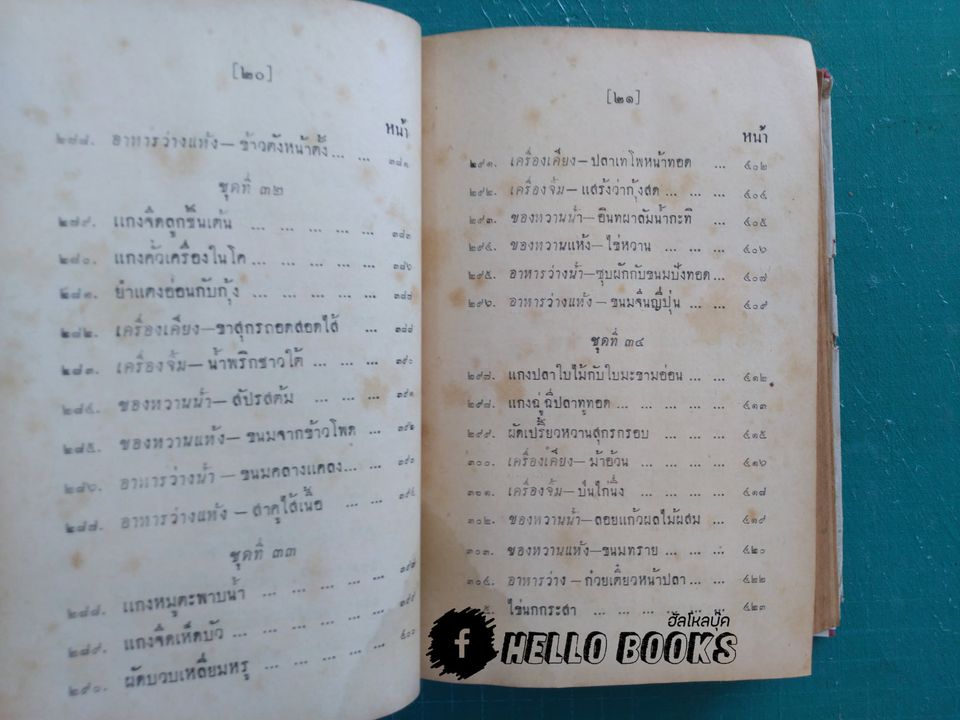 [๒๐]
หน้า
๒๗๘. อาหารว่างแห้ง—ข้าวตังหน้าตั้ง... ... ๓๘๑
ชุดที่ ๓๒
๒๗๙. แกงจืดลูกชิ้นเต้น ... ... ... ... ๓๘๓
๒๘๐. แกงคั่วเครื่องในโค ... ... ... ... ๓๘๖
๒๘๑. ยำแตงอ่อนกับกุ้ง ... ... ... ... ๓๘๗
๒๘๒. เครื่องเคียง—ขาสุกรถอดสอดไส้ ... ๓๘๘
๒๘๓. เครื่องจิ้ม—น้ำพริกชาวใต้ ... ... ๓๙๐
๒๘๔. ของหวานน้ำ—สัปรสต้ม ... ... ... ๓๙๑
๒๘๕. ของหวานแห้ง—ขนมจากข้าวโพด ... ๓๙๒
๒๘๖. อาหารว่างน้ำ—ขนมคลางแคลง... ...
๒๘๗. อาหารว่างแห้ง—สาคูไส้เนื้อ ... ...
ชุดที่ ๓๓
๒๘๘. แกงหมูตะพาบน้ำ ... ... ... ...
๒๘๙. แกงจืดเห็ดบัว ... ... ... ... ๓๙๙
๒๙๐. ผัดบวบเหลี่ยมหรุ ... ... ... ... ๔๐๐
[๒๑]
หน้า
๒๙๑. เครื่องเคียง—ปลาเทโพหน้าทอด ... ๔๐๒
๒๙๒. เครื่องจิ้ม—แสร้งว่ากุ้งสด ... ... ... ๔๐๔
๒๙๓. ของหวานน้ำ—อินทผาลัมน้ำกะทิ ... ๔๐๕
๒๙๔. ของหวานแห้ง—ไข่หวาน ... ... ... ๔๐๖
๒๙๕. อาหารว่างน้ำ—ซุบผักกับขนมปังทอด ... ๔๐๗
๒๙๖. อาหารว่างแห้ง—ขนมจีนญี่ปุ่น ... ... ๔๐๙
ชุดที่ ๓๔
๒๙๗. แกงปลาใบไม้กับใบมะขามอ่อน ... ... ๔๑๒
๒๙๘. แกงฉู่ฉี่ปลาทูทอด ... ... ... ... ๔๑๓
๒๙๙. ผัดเปรี้ยวหวานสุกรกรอบ ... ... ... ๔๑๕
๓๐๐. เครื่องเคียง—ม้าอ้วน ... ... ... ... ๔๑๖
๓๐๑. เครื่องจิ้ม—ป่นไก่นึ่ง ... ... ... ... ๔๑๗
๓๐๒. ของหวานน้ำ—ลอยแก้วผลไม้ผสม ... ๔๑๙
๓๐๓. ของหวานแห้ง—ขนมทราย ... ... ... ๔๒๐
๓๐๔. อาหารว่าง—ก๋วยเตี๋ยวหน้าปลา ... ... ๔๒๒
ไข่นกกระสา ... ... ... ... ... ๔๒๓
ฮัลโหลบุ๊ค
f HELLO BOOKS